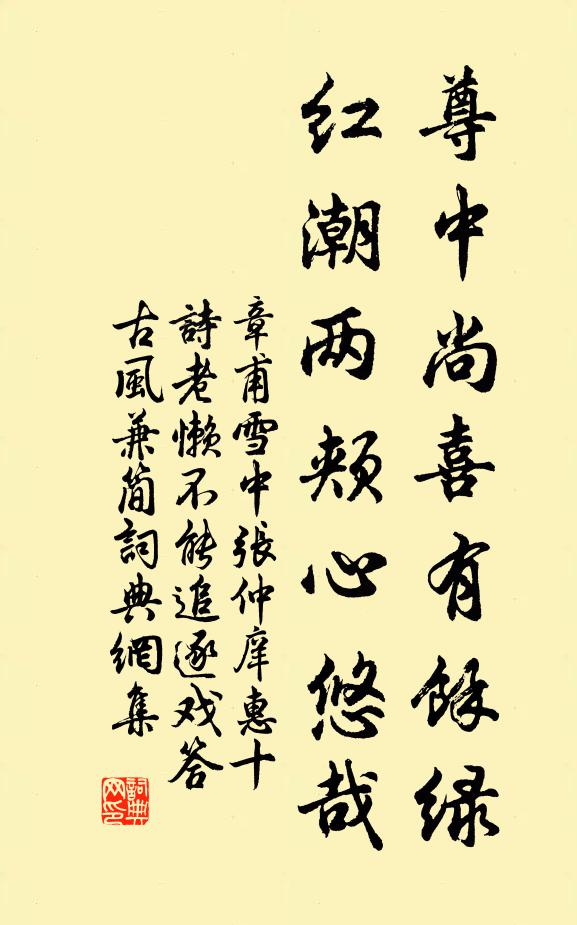 尊中尚喜有餘绿
红潮两颊心悠哉
章甫雪中張仲庠惠十
詩老懒不能追逐戏答
古風兼简詞典網集
詞典
网印